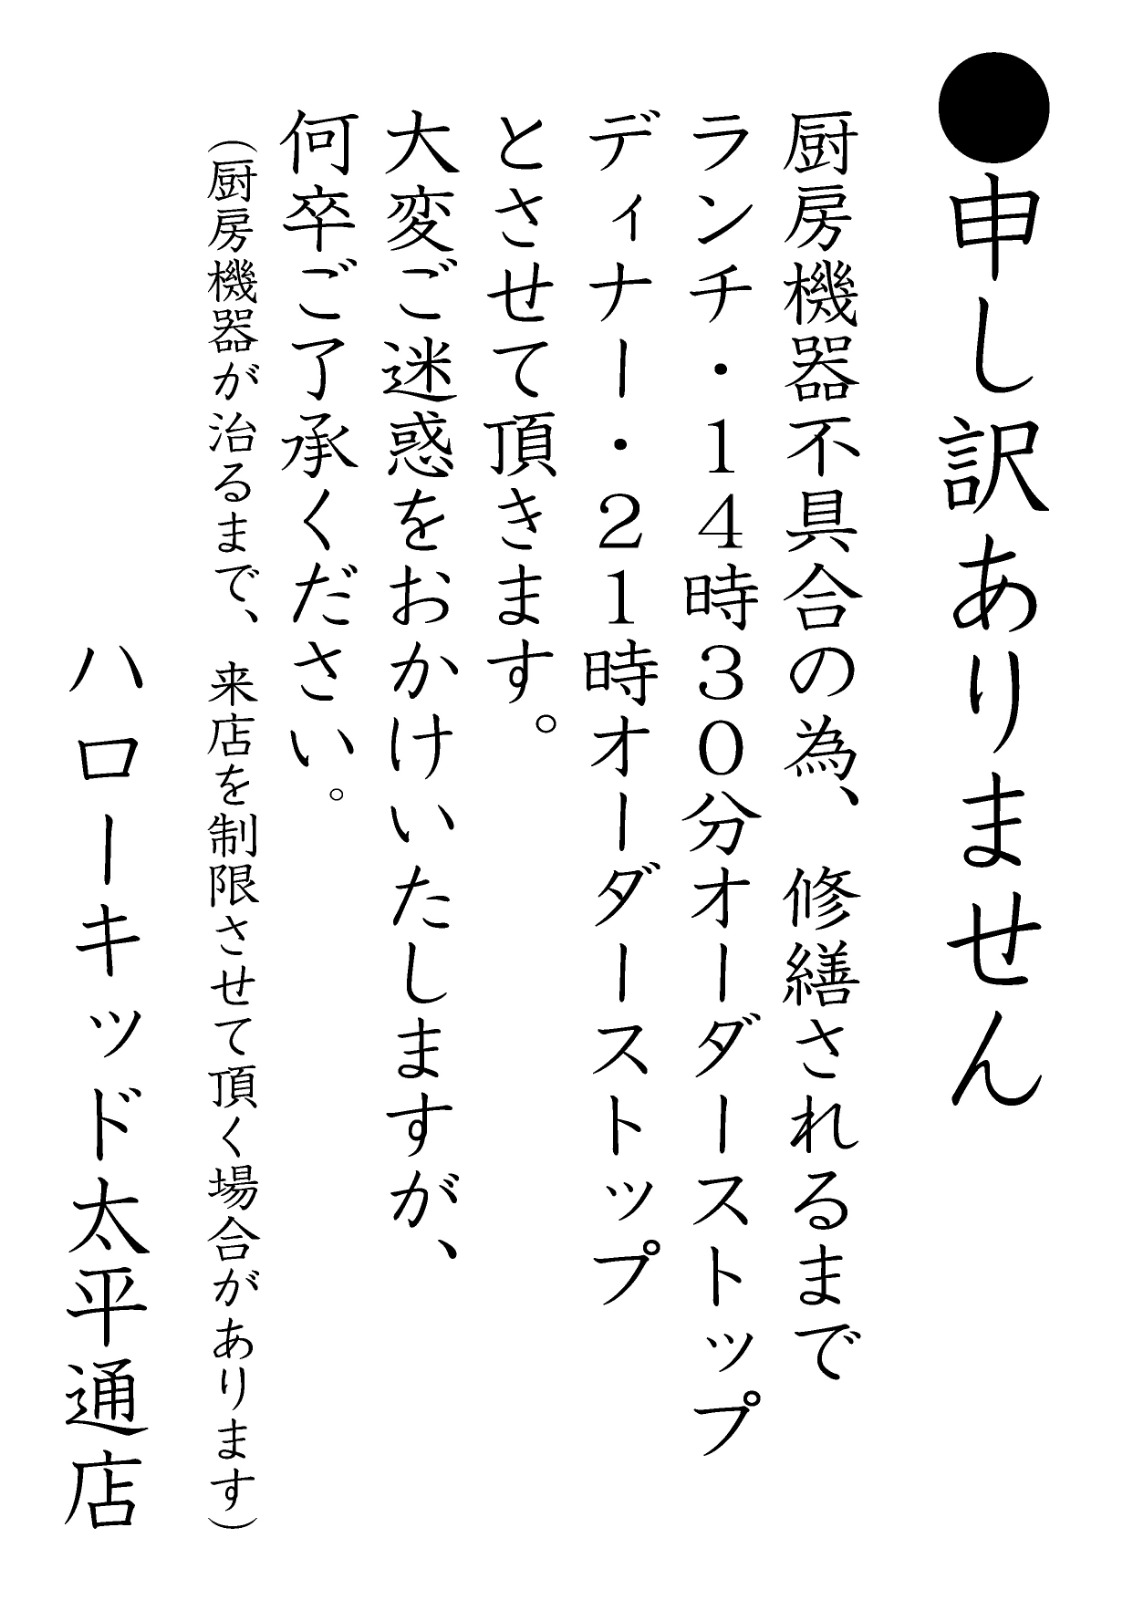 ●申し訳ありません
厨房機器不具合の為、修繕されるまで
ランチ・１４時３０分オーダーストップ
ディナー・２１時オーダーストップ
とさせて頂きます。
大変ご迷惑をおかけいたしますが、
何卒ご了承ください。
（厨房機器が治るまで、来店を制限させて頂く場合があります）
ハローキッド太平通店